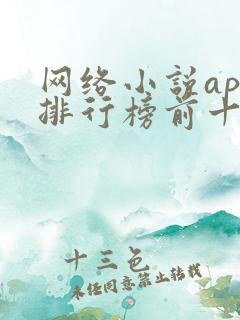 网络小说ap
排行榜前十
十三色
未经同意禁止转载